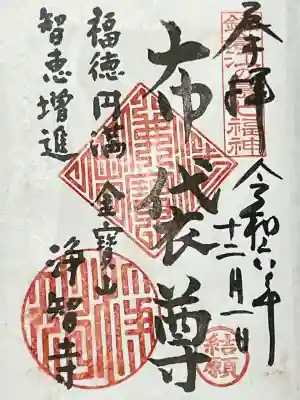 奉拝
福神
令和六年
十二月一日
結願
布袋尊
福徳円満
金寶山
浄智寺
智恵増進